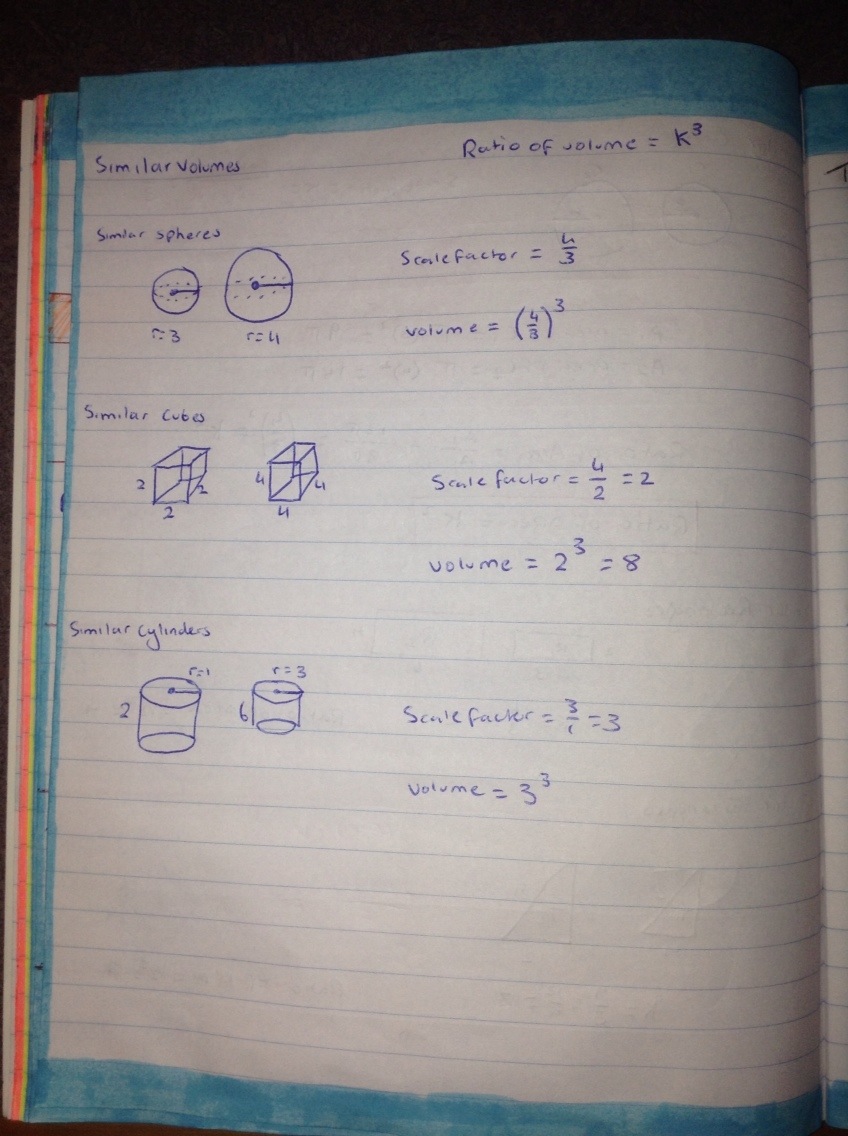 Similar volumes
Ratio of volume = K³
Similar spheres
r=3 r=4
Scale factor = 4/3
volume = (4/3)³
Similar Cubes
2 2 2
4 4 4
Scale factor = 4/2 = 2
volume = 2³ = 8
Similar Cylinders
r=1 r=3
2 6
Scale factor = 3/1 = 3
Volume = 3³
T